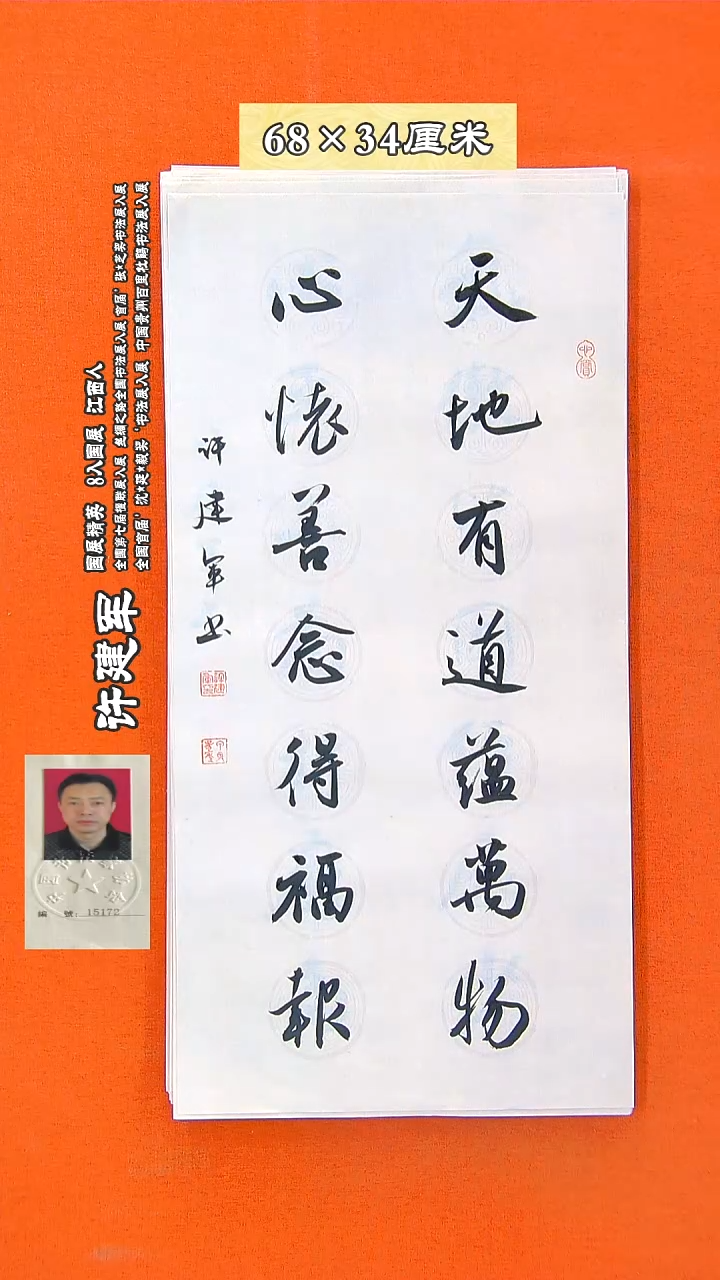 68×34厘米
天地有道蕴萬物
心懷善念得福報
许建军书
许建军
國展精英 8入國展 江西人
全國第七届楹联展入展 丝绸之路全國书法展入展 首届‘张★芝奖书法展入展
全国首届’沈★延★毅奖‘书法展入展 中国贵州百里杜鹃书法展入展
編 號：15172